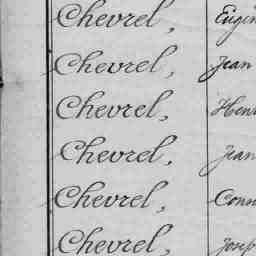 Chevrel, Eugèn
Chevrel, Jean
Chevrel, Henr
Chevrel, Jean
Chevrel, Conn
Chevrel, Josep